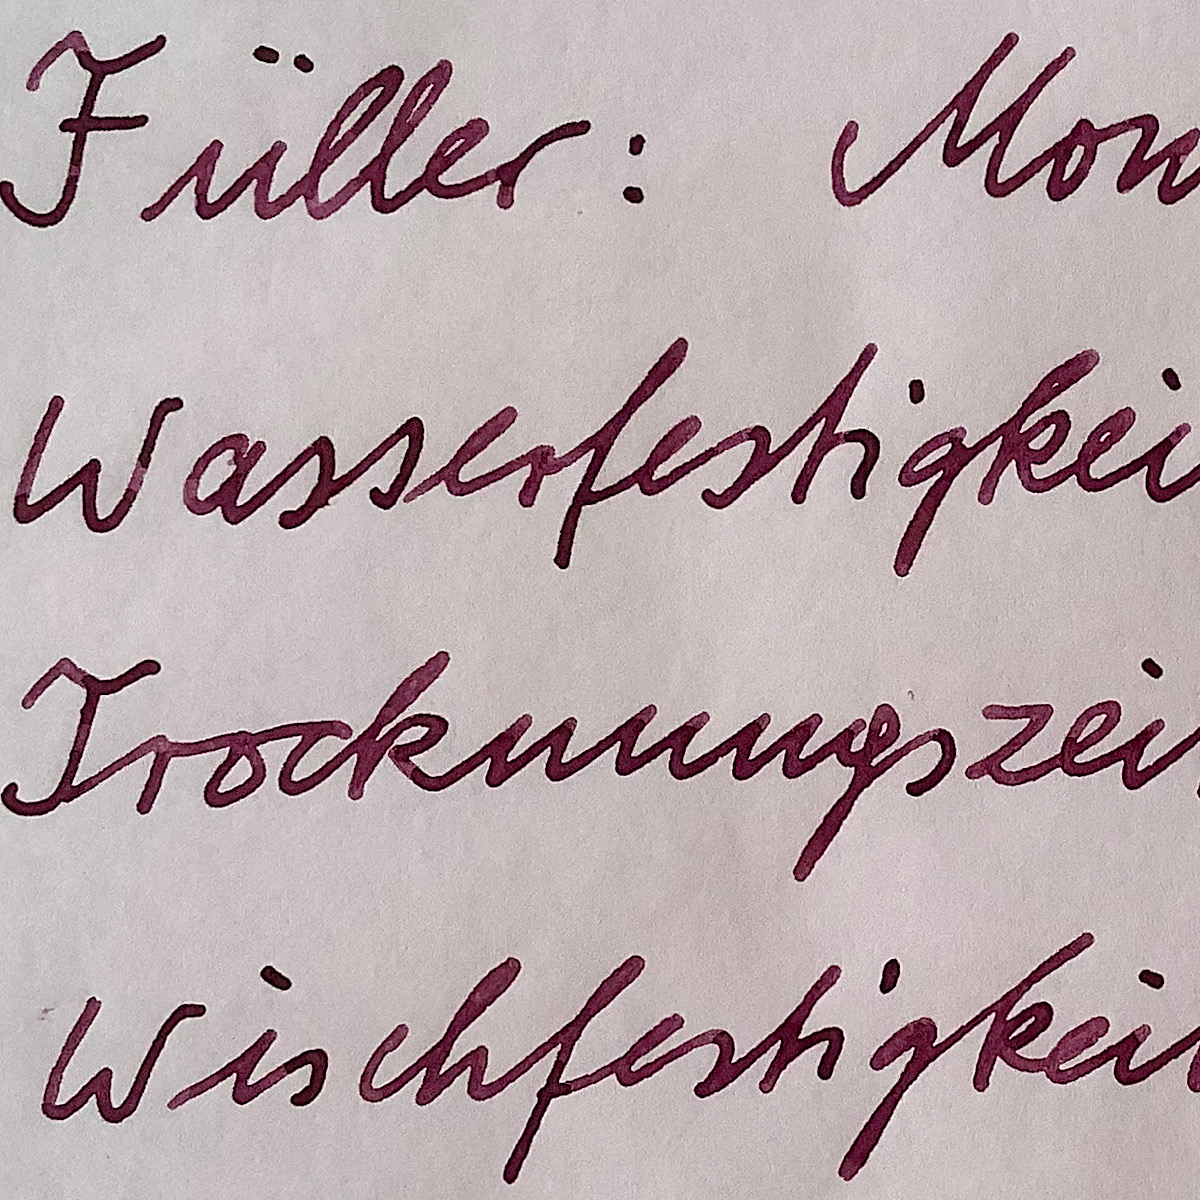 Füller: Mon
Wasserfestigkei
Trocknungszei
Wischfestigkei